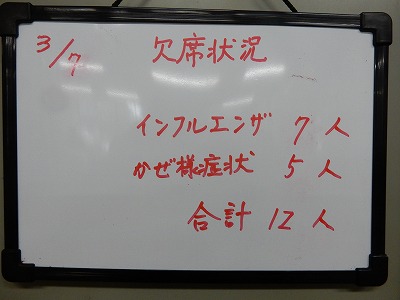 3/7 欠席状況
インフルエンザ 7人
かぜ様症状 5人
合計 12人